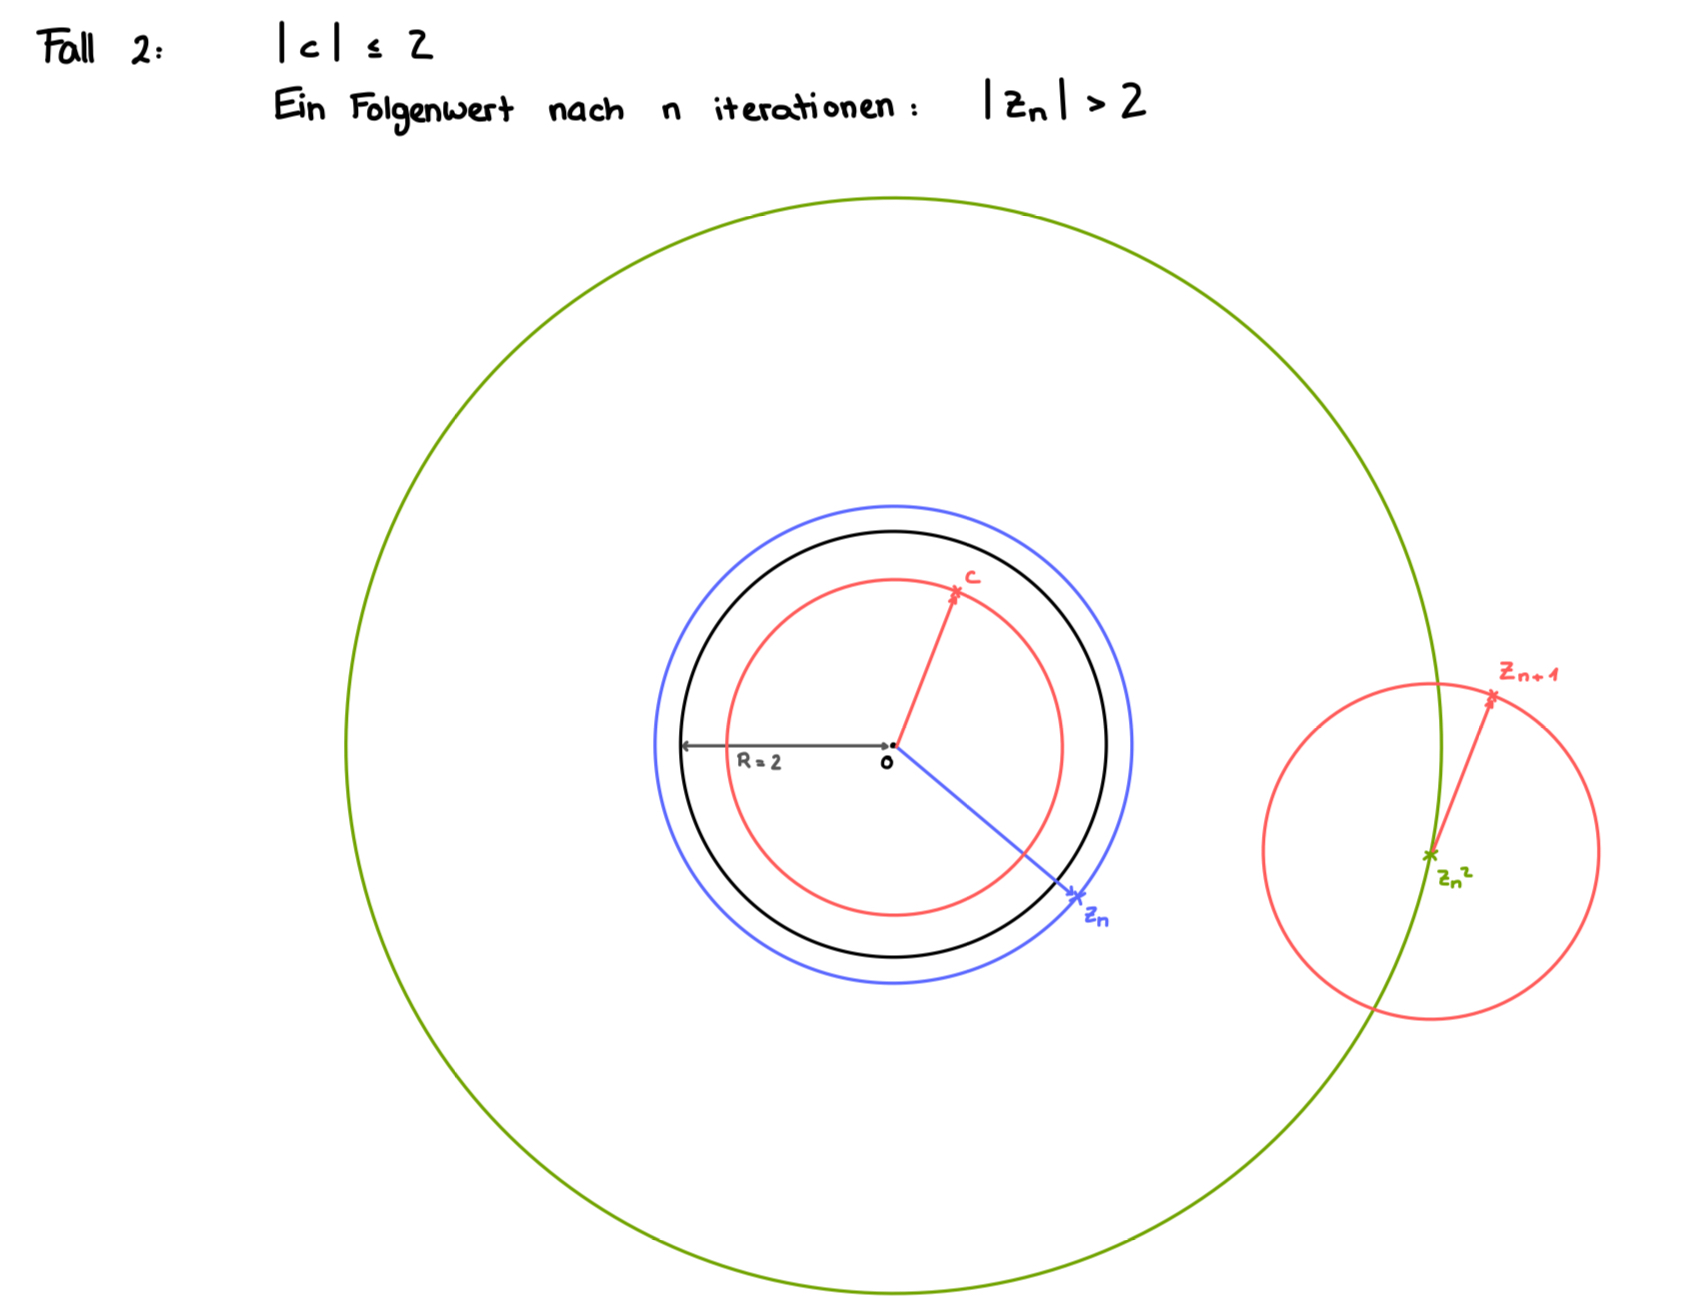 Fall 2: |c| ≤ 2
Ein Folgenwert nach n iterationen: |zn| > 2
c
zn+1
R = 2
0
zn²
zn